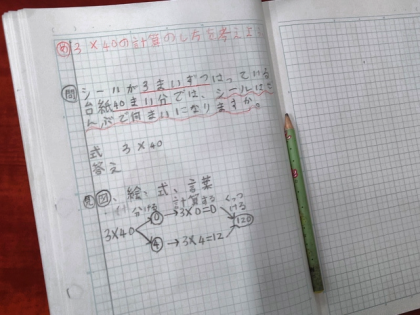 め 3×40の計算のしかたを考えよ
問 シールが3まいずつはっている
台紙40まい分では、シールはぜ
んぶで何まいになりますか。
式 3×40
答え
見 図、絵、式、言葉
分ける 計算する くっつ
ける
3×40
0 → 3×0=0
4 → 3×4=12
120